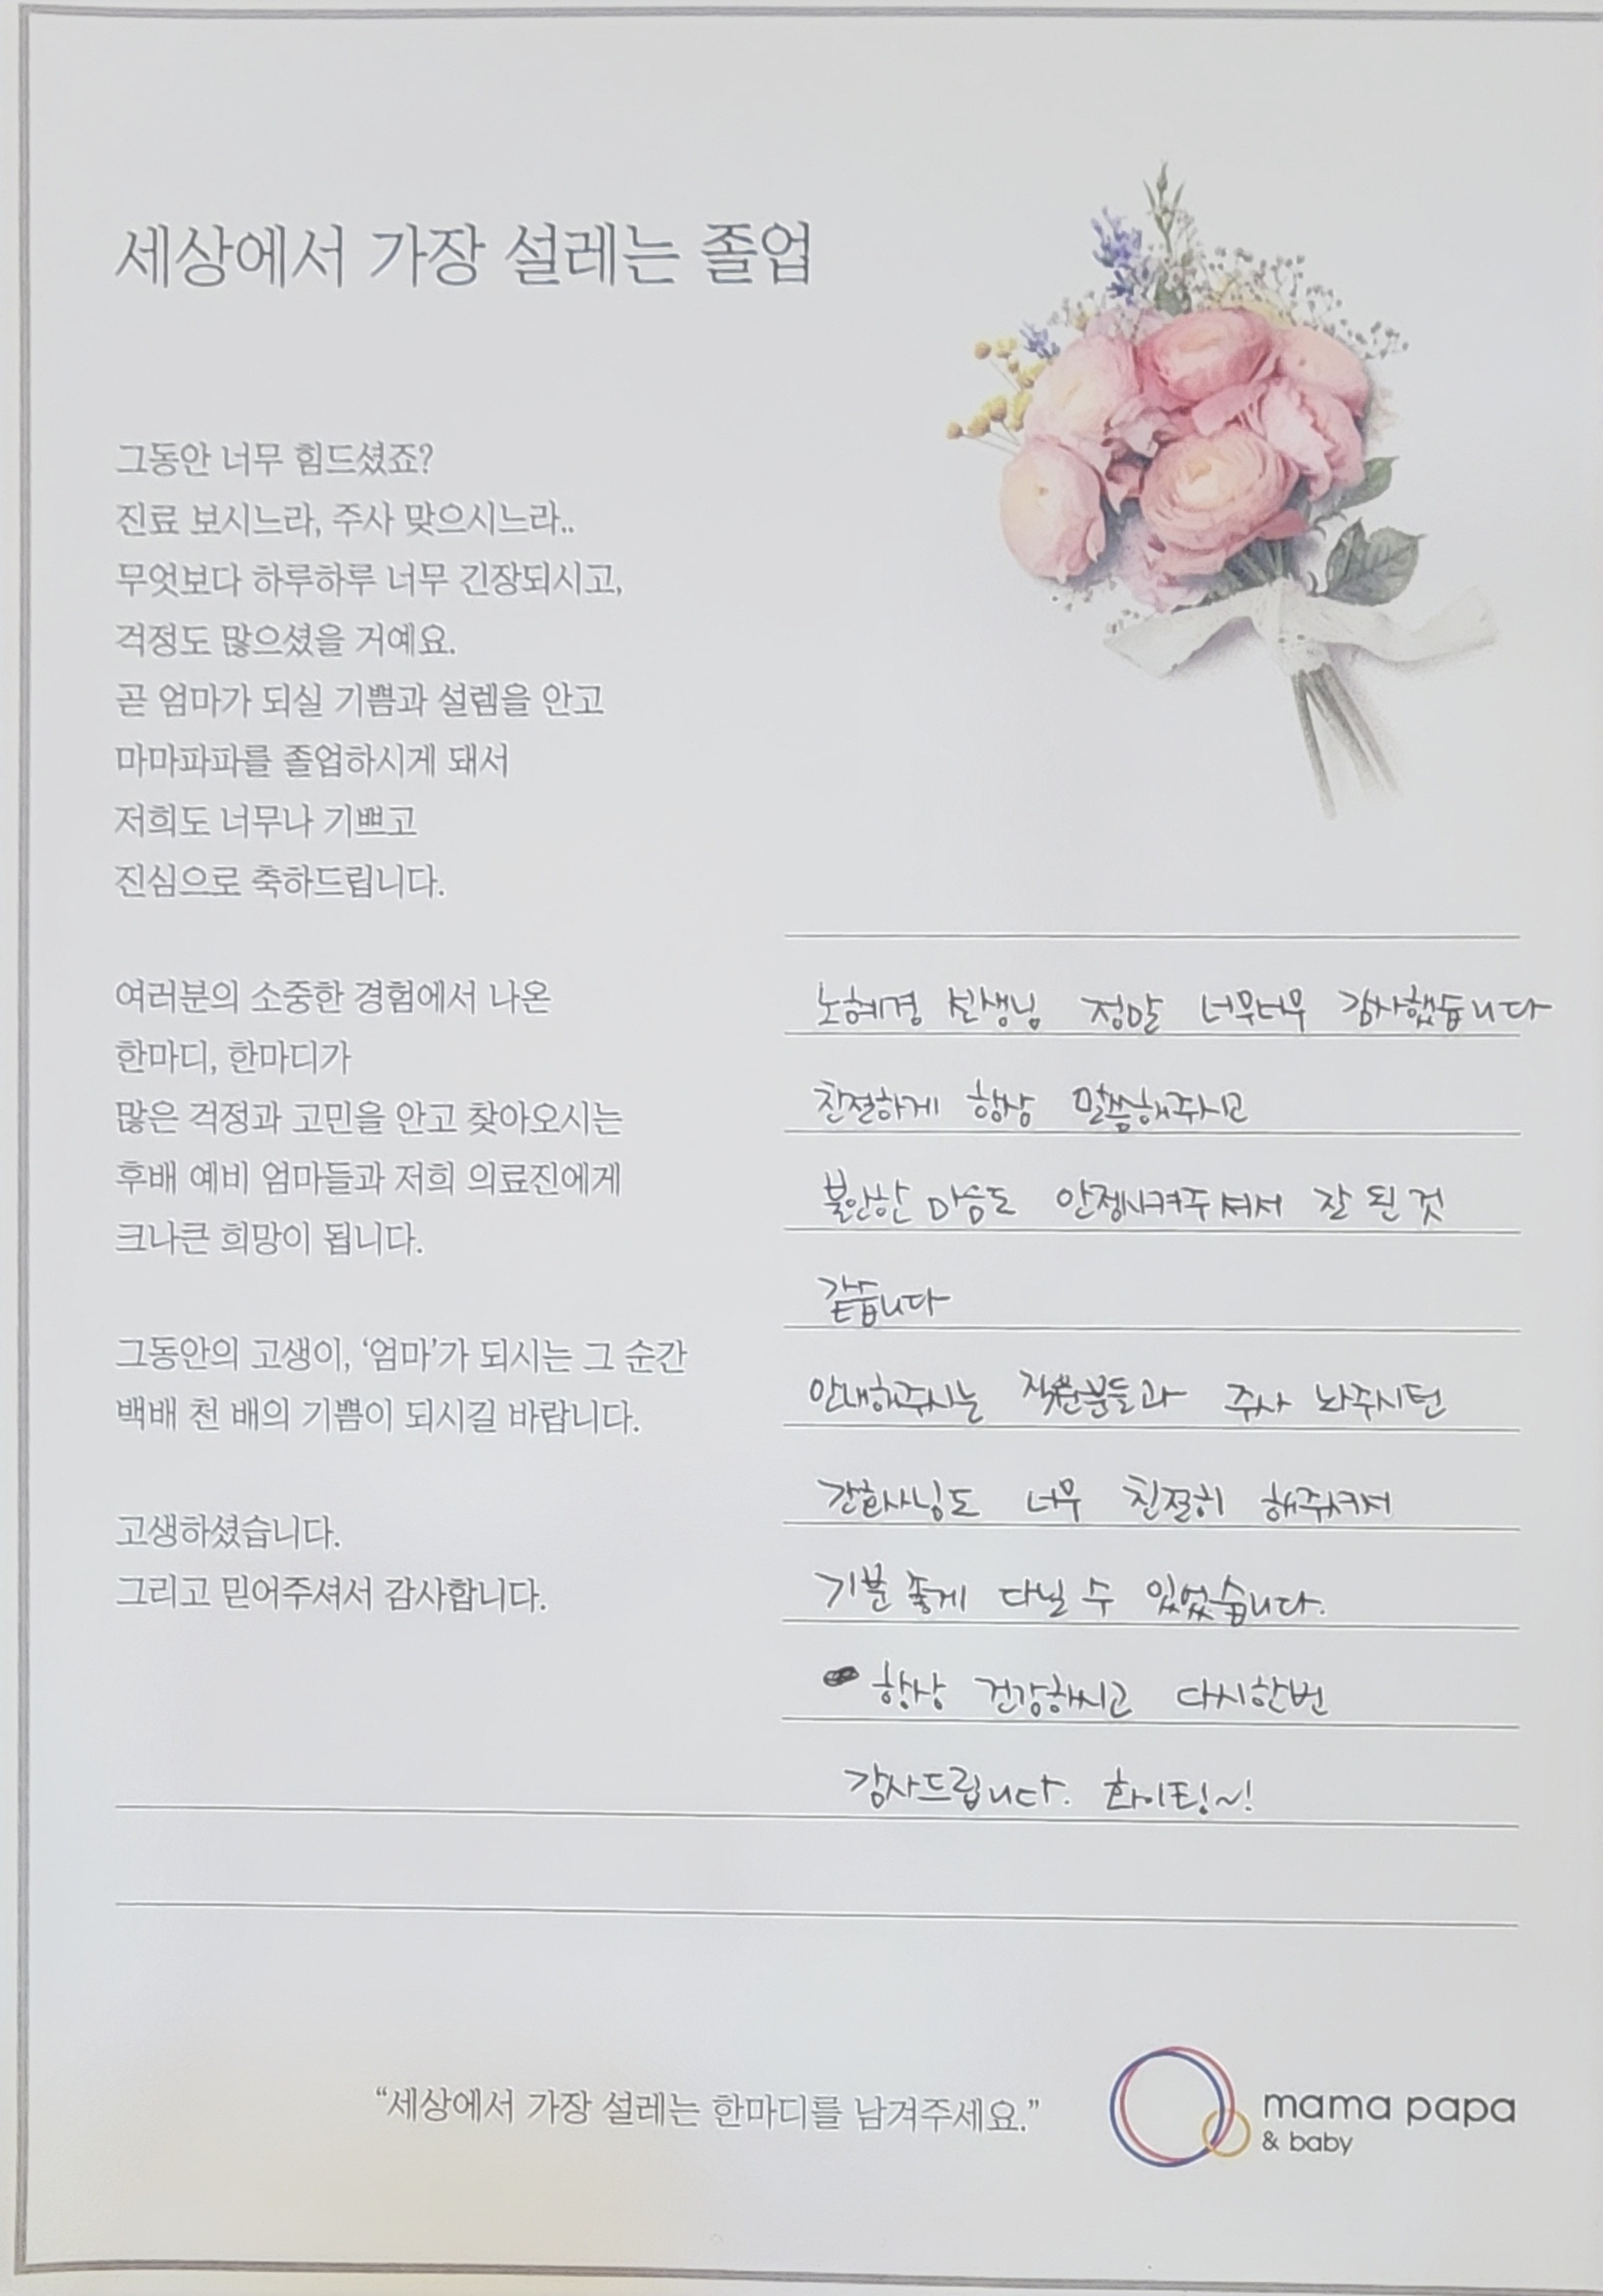 세상에서 가장 설레는 졸업
그동안 너무 힘드셨죠?
진료 보시느라, 주사 맞으시느라..
무엇보다 하루하루 너무 긴장되시고,
걱정도 많으셨을 거예요.
곧 엄마가 되실 기쁨과 설렘을 안고
마마파파를 졸업하시게 돼서
저희도 너무나 기쁘고
진심으로 축하드립니다.
여러분의 소중한 경험에서 나온
한마디, 한마디가
많은 걱정과 고민을 안고 찾아오시는
후배 예비 엄마들과 저희 의료진에게
크나큰 희망이 됩니다.
그동안의 고생이, ‘엄마’가 되시는 그 순간
백배 천 배의 기쁨이 되시길 바랍니다.
고생하셨습니다.
그리고 믿어주셔서 감사합니다.
노혜경 선생님 정말 너무너무 감사했습니다
친절하게 항상 말씀해주시고
불안한 마음도 안정시켜주셔서 잘 된 것
같습니다
안내해주시는 직원분들과 주사 놔주시던
간호사님도 너무 친절히 해주셔서
기분 좋게 다닐 수 있었습니다.
항상 건강하시고 다시한번
감사드립니다. 화이팅~!
“세상에서 가장 설레는 한마디를 남겨주세요.”
mama papa
& baby